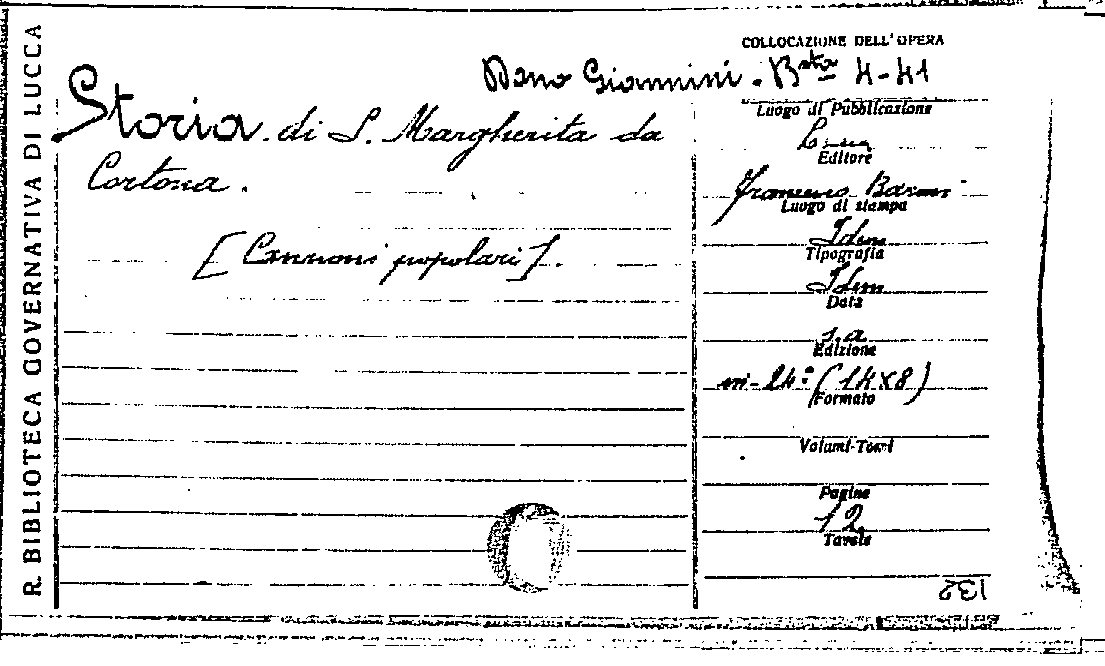 R. BIBLIOTECA GOVERNATIVA DI LUCCA
COLLOCAZIONE DELL'OPERA
Dono Giannini. Bsta 4-41
Storia di S. Margherita da
Cortona.
[Canzoni popolari].
Luogo di Pubblicazione
Editore
Francesco Baroni
Luogo di stampa
Idem
Tipografia
Idem
Data
s.a
Edizione
in-24° (14x8)
Formato
Volumi-Tomi
Pagine
12
Tavole
132